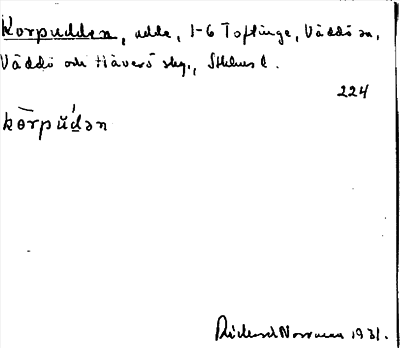 Korpudden, udde, 1-6 Toftinge, Väddö sn,
Väddö och Häverö skg., Sthlms l.
224
kōrpŭ́dən
Rickard Norrman 1931.